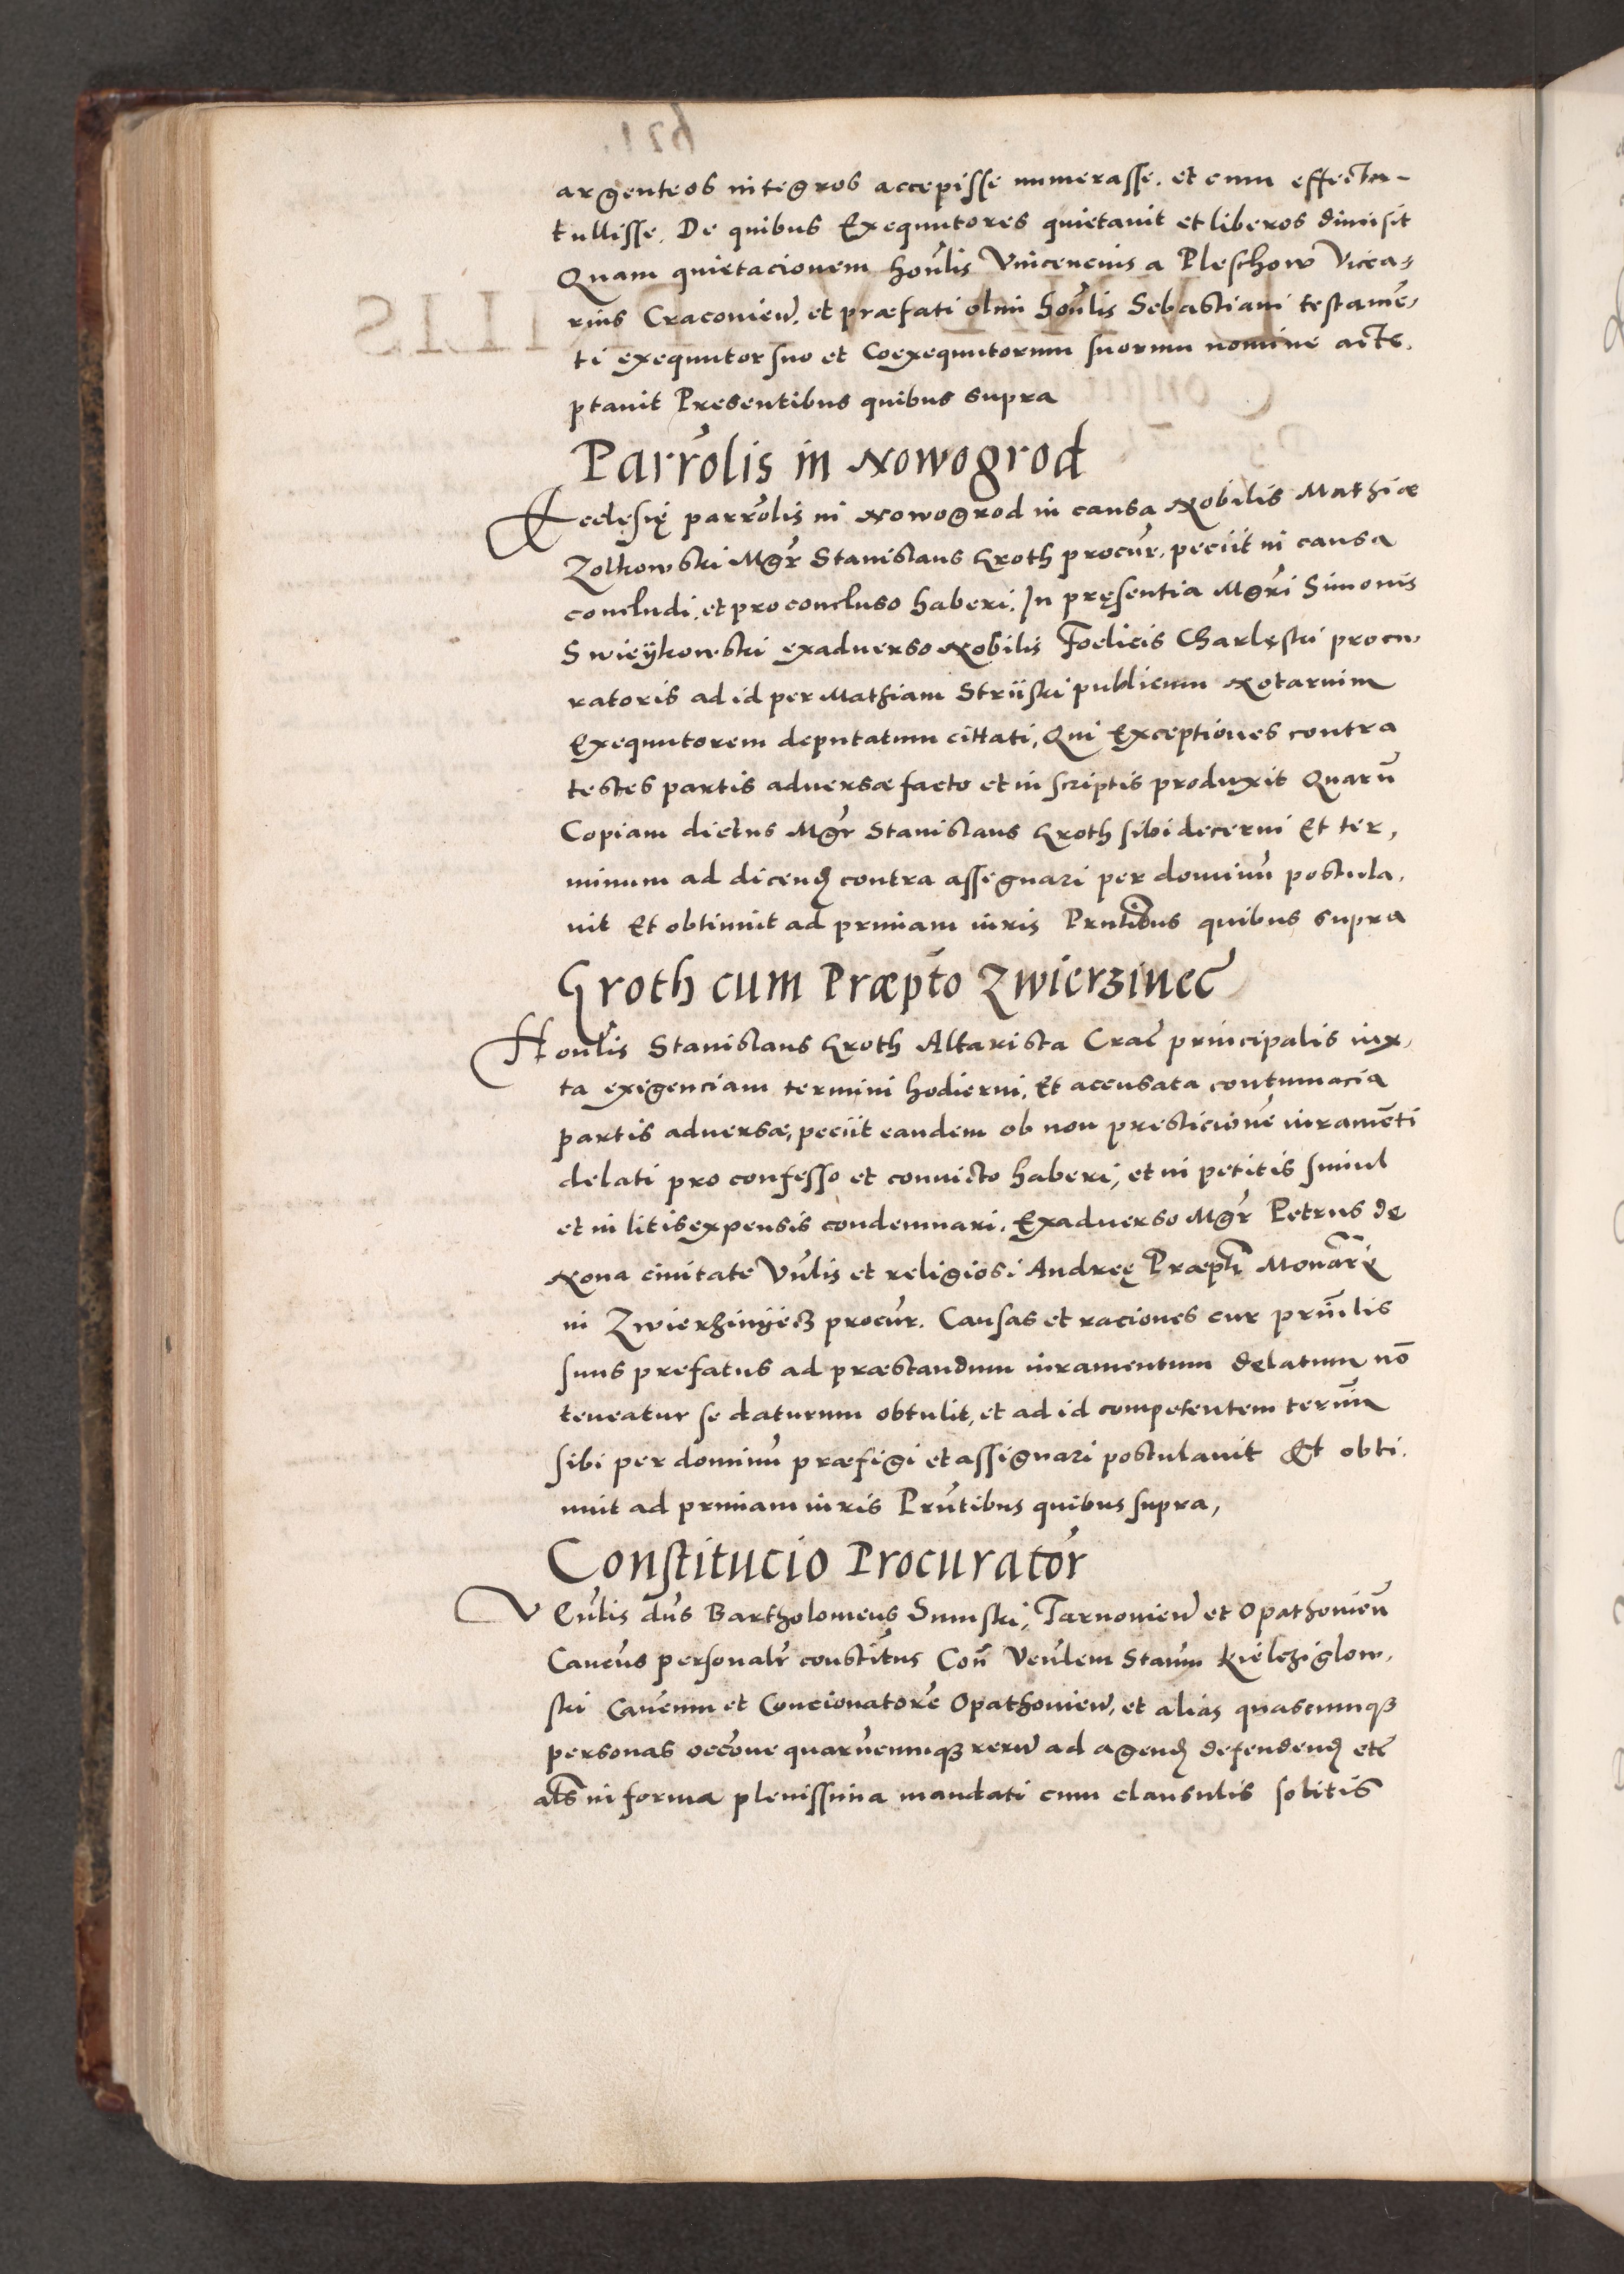 argenteos integros accepisse numerasse. et cum effectu
tullisse. De quibus Exequutores quietauit et liberos dimisit
Quam quietacionem hon̄lis Vincencius a Pleschow Vica-
rius Cracovien̄. et præfati olim hon̄lis Sebastiani testamē-
ti exequutor suo et Coexequutorum suorum nomine acte.
ptauit Presentibus quibus supra
Parr̄olis in Nowogrod
Ecclęsię parr̄olis in Nowogrod in causa Nobilis Mathiæ
Zolkowski Mgr̄ Stanislaus Groth procur̄. peciit in causa
concludi. et pro concluso haberi. In pręsentia Mgr̄i Simonis
Swieÿkowski exaduerso Nobilis Foelicis Charlęski procu
ratoris ad id per Mathiam Strijski publicum Notarium
Exequutorem deputatum cittati, Qui Exceptiones contra
testes partis aduersæ facto et in scriptis produxit Quarū
Copiam dictus Mgr̄ Stanislaus Groth sibi decerni Et ter,
minum ad dicend̄ contra assignari per dominū postula.
uit Et obtinuit ad primam iuris Pr̄ntibus quibus supra
Groth cum Præpt̄o Zwierzinec̄
Hon̄lis Stanislaus Groth Altarista Crac̄ principalis iux,
ta exigenciam termini hodierni. Et accusata contumacia
partis aduersæ, peciit eandem ob non presticionē iuramēti
delati pro confesso et conuicto haberi, et in petitis simul
et in litis expensis condemnari. Exaduerso Mgr̄ Petrus de
Noua ciuitate Vn̄lis et religiosi Andreę Præpt̄i Monar̄ÿ
in Zwierzinÿecz procur̄. Causas et raciones cur prin̄lis
suus prefatus ad præstandum iuramentum delatum nō
teneatur se daturum obtulit, et ad id competentem termīn
sibi per dominū præfigi et assignari postulauit Et obti.
nuit ad primam iuris Prn̄tibus quibus supra,
Constitucio Procurator̄
Ven̄lis dn̄s Bartholomeus Sumski, Tarnouien̄ et Opathouien̄
Can̄cus personalr̄ constit̄us Con̄ Ven̄lem Stanm̄ Kielcziglow,
ski Can̄cum et Concionatorē Opathouien̄, et alias quascumqꝫ
personas occōne quarūcumqꝫ rerū ad agend̄ defendend̄ etc̄
als̄ in forma plenissima mandati cum clausulis solitis